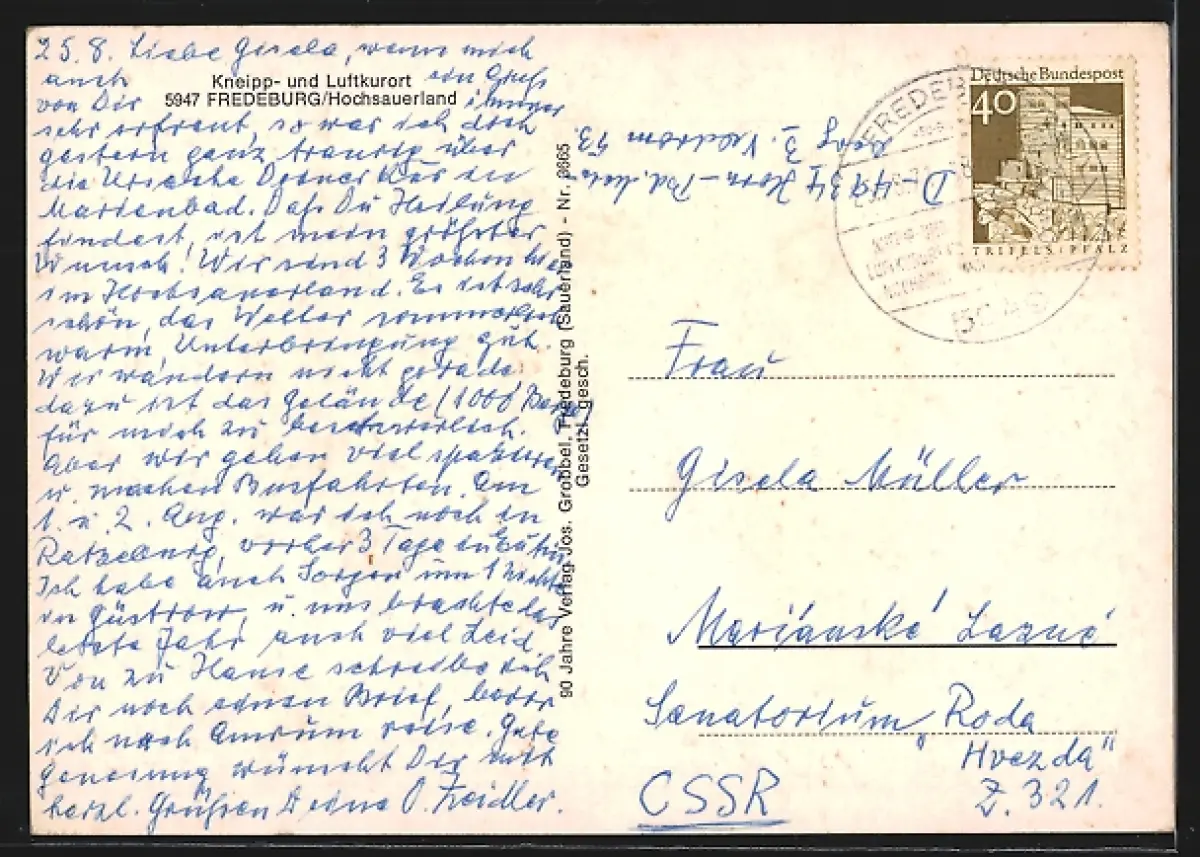 25.8. Liebe Gisela, wenn mich
auch ein Gruß
von Dir immer
sehr erfreut, so war ich doch
gestern ganz traurig über
die Ursache Deiner Kur in
Marienbad. Daß Du Heilung
findest, ist mein größter
Wunsch! Wir sind 3 Wochen hier
im Hochsauerland. Es ist sehr
schön, das Wetter sommerlich
warm, Unterbringung gut.
Wir wandern nicht gerade:
dazu ist das Gelände (1000 Berge)
für mich zu beschwerlich.
Aber wir gehen viel spazieren
u. machen Busfahrten. Am
1. u. 2. Aug. war ich noch in
Ratzeburg, vorher 3 Tage in Eutin
Ich habe auch Sorgen um 1 Nichte
in Güstrow, u. uns brachte das
letzte Jahr auch viel Leid.
Von zu Hause schreibe ich
Dir noch einen Brief, bevor
ich nach Amrum reise. Gute
Genesung wünscht Dir mit
herzl. Grüßen Deine O. Zeidler.
Kneipp- und Luftkurort
5947 FREDEBURG/Hochsauerland
90 Jahre Verlag Jos. Grobbel, Fredeburg (Sauerland) - Nr. 6665
Gesetzl. gesch.
D-4934 Horn-Bad
3. 53.
FREDEB
Deutsche Bundespost
40
TRIFELS · PFALZ
Frau
Gisela Müller
Mariánské Lazné
Sanatorium Roda
"Hvezda"
Z. 321.
CSSR